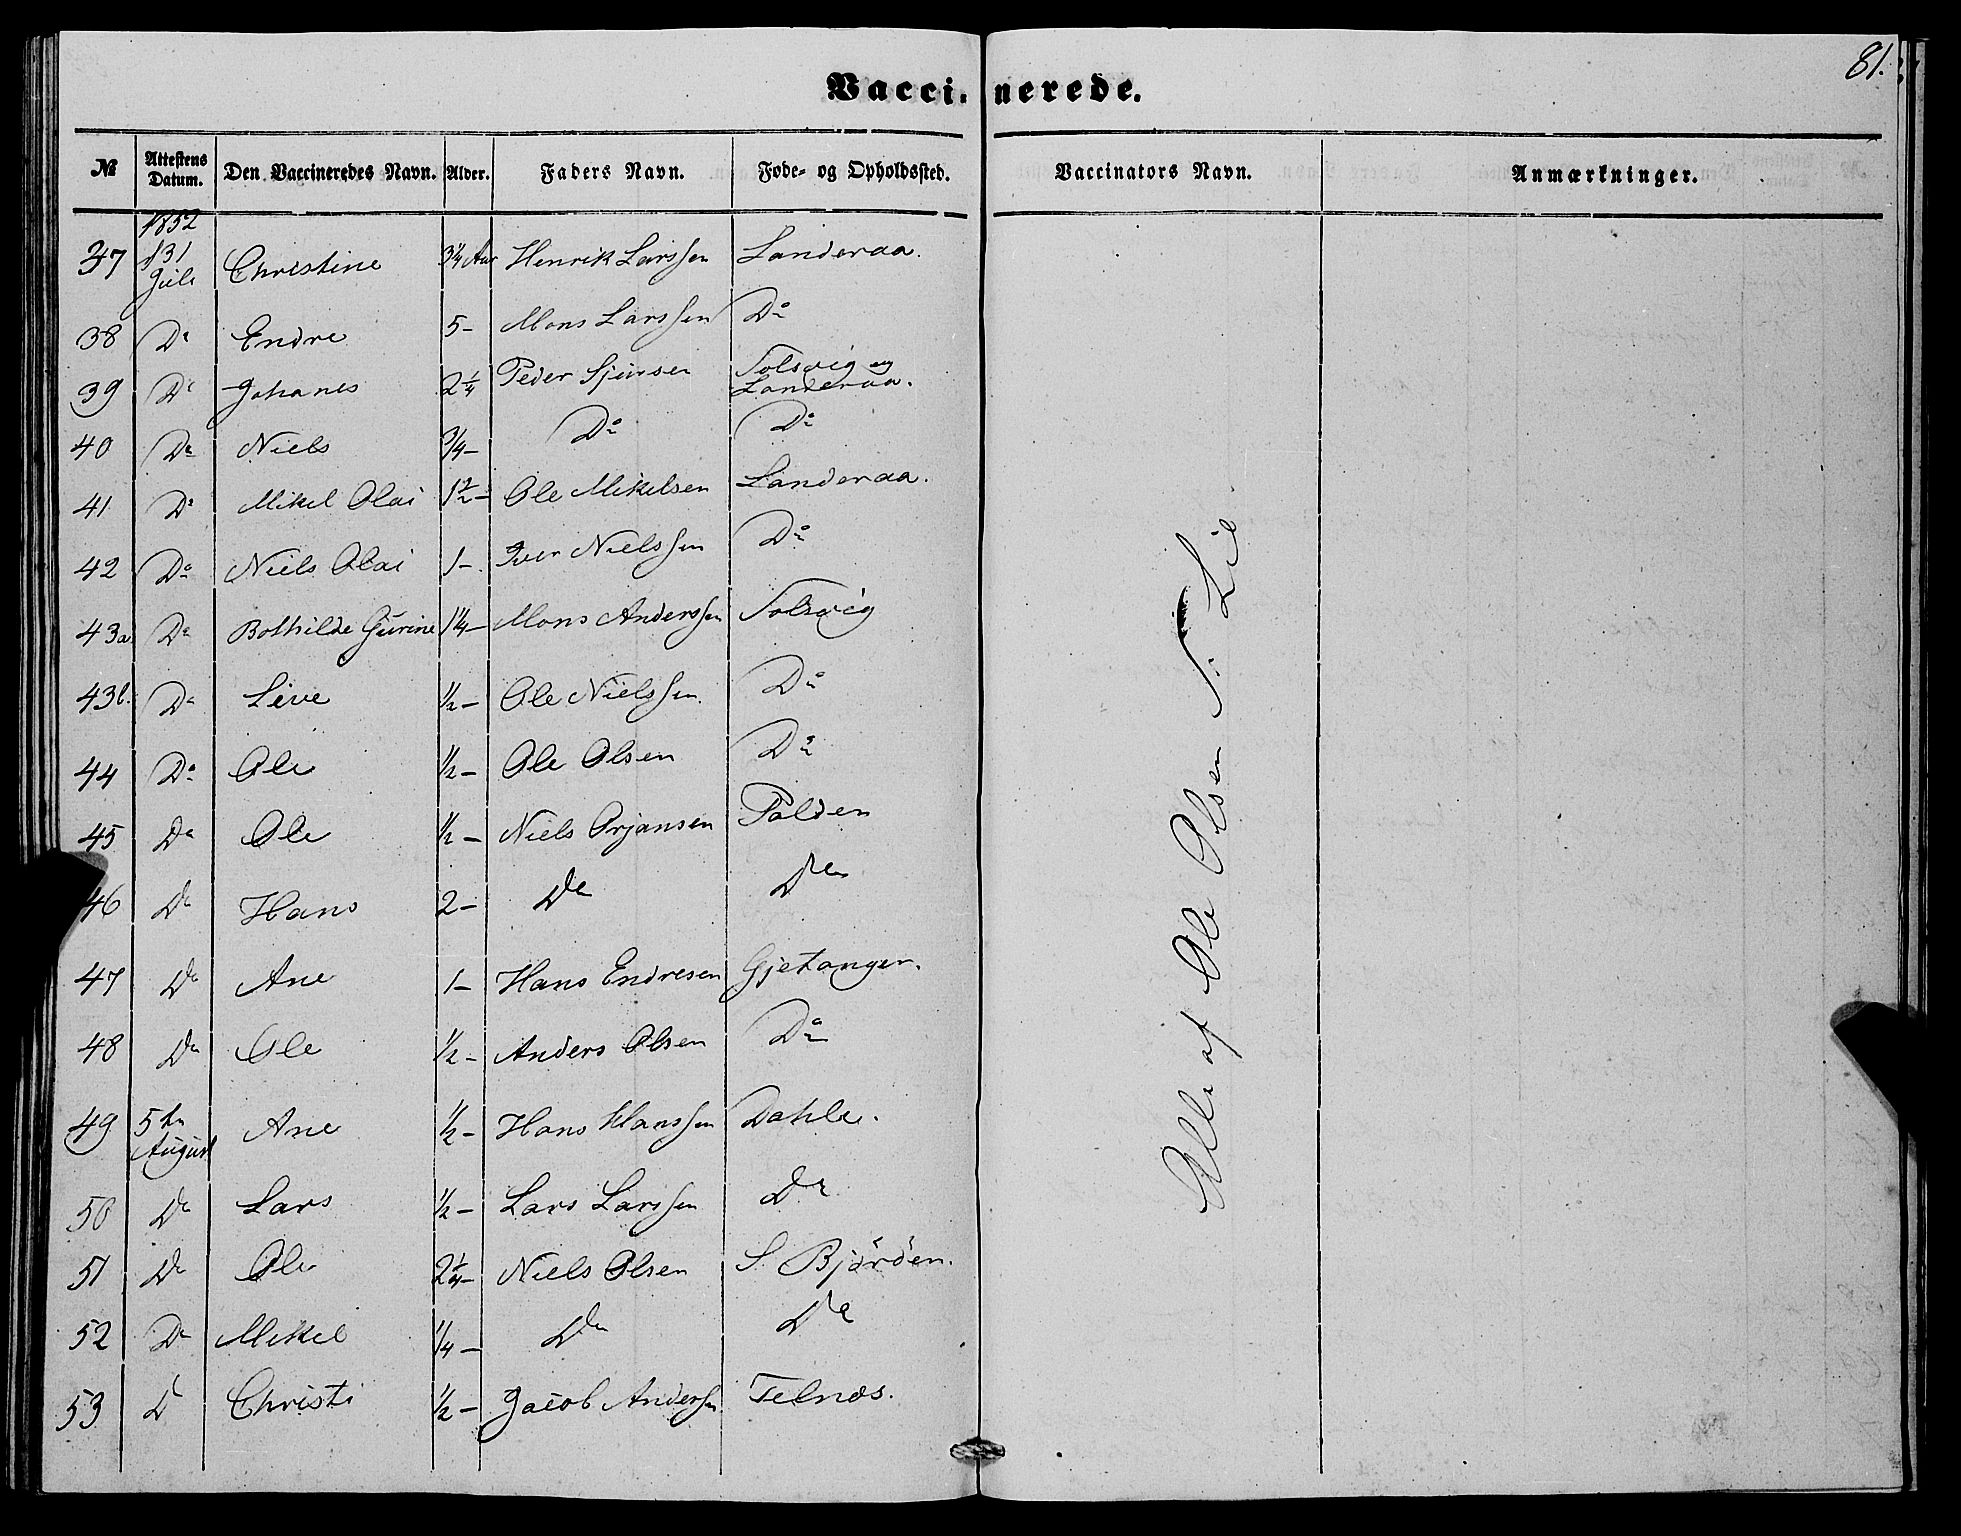 81.
Vaccinerede.
№ Attestens Datum. Den Vaccineredes Navn. Alder. Faders Navn. Føde- og Opholdssted. Vaccinators Navn. Anmærkninger.
1852
37 d 31 Juli Christine 3 1/4 Aar Henrik Larssen Landeraa.
38 Do Endre 5- Mons Larssen Do
39 Do Johanes 2 1/4 Peder Sjursen Solsvig og Landeraa.
40 Do Niels 3/4- Do Do
41 Do Mikel Olai 1 1/2- Ole Mikelsen Landeraa.
42 Do Niels Olai 1- Iver Nielssen Do
43a Do Bothilde Gurine 1 1/4- Mons Anderssen Solsvig
43b. Do Live 1/2- Ole Nielssen Do
44 Do Ole 1/2- Ole Olsen Do
45 Do Ole 1/2- Niels Ørjansen Polden
46 Do Hans 2- Do Do
47 Do Ane 1- Hans Endresen Gjetanger.
48 Do Ole 1/2- Anders Olsen Do
49 5te August Ane 1/2- Hans Hanssen Dahle.
50 Do Lars 1/2- Lars Larssen Do
51 Do Ole 2 1/4- Niels Olsen S. Björöen.
52 Do Mikel 1/4- Do Do
53 D Christi 1/2- Jacob Anderssen Telnæs.
Alle af Ole Olsen S. Lie